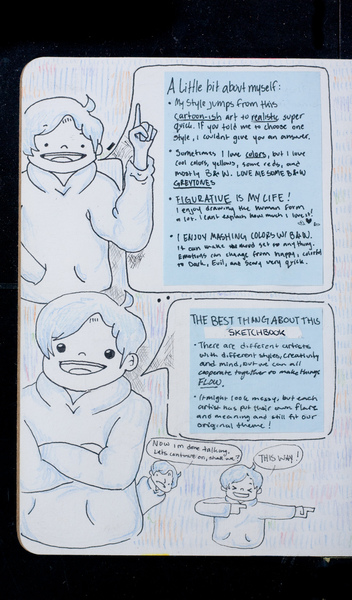 A little bit about myself:
• My style jumps from this
cartoon-ish art to realistic super
quick. If you told me to choose one
style, I couldnt give you an answer.
• Sometimes I love colors, but I love
cool colors, yellows, some reds, and
mostly B&W. LOVE ME SOME B&W
GREYTONES
• FIGURATIVE IS MY LIFE!
I enjoy drawing the human form
a lot. I cant explain how much I love it!
• I ENJOY MASHING COLORS W/ B&W.
It can make the mood set to anything.
Emotions can change from happy, colorful
to Dark, Evil, and Scary very quick.
THE BEST THING ABOUT THIS
SKETCHBOOK
• There are different artists
with different styles, creativity
and mind, but we can all
cooperate together to make things
FLOW.
• It might look messy, but each
artist has put their own flare
and meaning and still fit our
original theme!
Now im done talking.
Lets continue on, shall we?
THIS WAY!